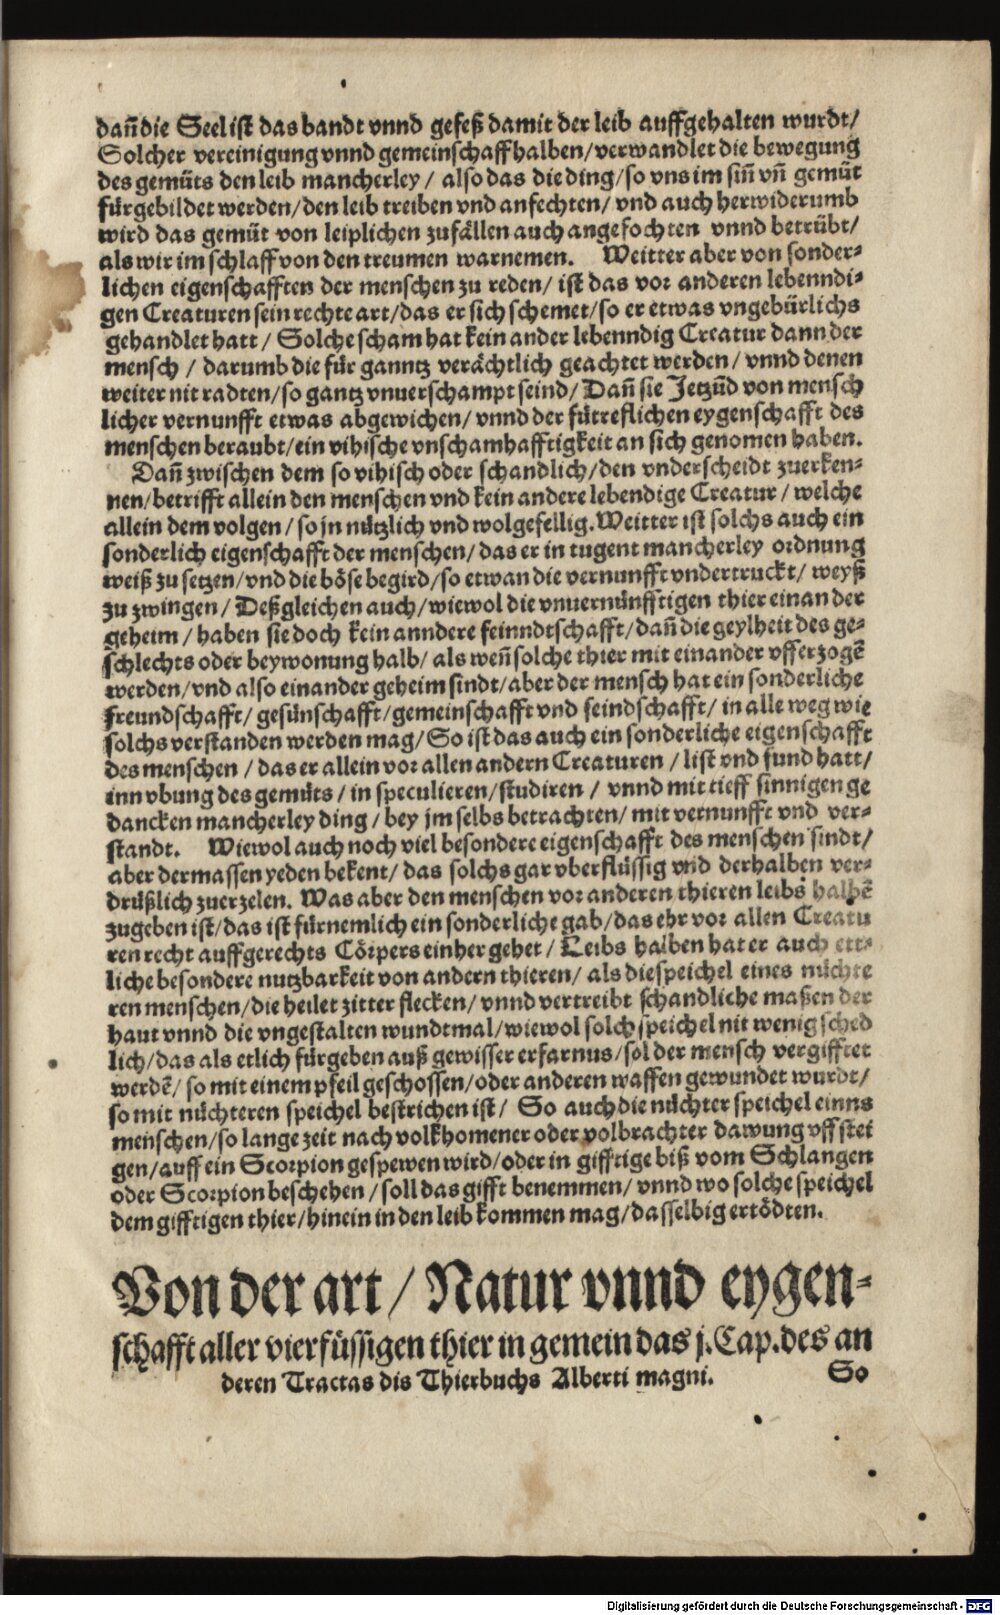 dañ die Seel ist das bandt vnnd gefeß damit der leib auffgehalten wurdt/
Solcher vereinigung vnnd gemeinschaff halben/verwandlet die bewegung
des gemüts den leib mancherley / also das die ding/so vns im siñ vñ gemüt
fürgebildet werden/den leib treiben vnd anfechten/ vnd auch herwiderumb
wird das gemüt von leiplichen zufällen auch angefochten vnnd betrübt/
als wir im schlaff von den treumen warnemen. Weitter aber von sonder-
lichen eigenschafften der menschen zu reden/ ist das vor anderen lebenndi-
gen Creaturen sein rechte art/das er sich schemet/so er etwas vngebürlichs
gehandlet hatt / Solche scham hat kein ander lebenndig Creatur dann der
mensch / darumb die für ganntz verächtlich geachtet werden/ vnnd denen
weiter nit radten/so gantz vnuerschampt seind/ Dañ sie Jetzũd von mensch
licher vernunfft etwas abgewichen/ vnnd der fütreflichen eygenschafft des
menschen beraubt/ein vihische vnschamhafftigkeit an sich genomen haben.
Dañ zwischen dem so vihisch oder schandlich/den vnderscheidt zuerken-
nen/betrifft allein den menschen vnd kein andere lebendige Creatur / welche
allein dem volgen/so jn nützlich vnd wolgefellig. Weitter ist solchs auch ein
sonderlich eigenschafft der menschen/das er in tugent mancherley ordnung
weiß zu setzen/vnd die böse begird/so etwan die vernunfft vndertruckt/ weyß
zu zwingen/ Deßgleichen auch/wiewol die vnuernünfftigen thier einander
geheim / haben sie doch kein anndere feinndtschafft/dañ die geylheit des ge-
schlechts oder beywonung halb/ als weñ solche thier mit einander vfferzogẽ
werden/vnd also einander geheim sindt/aber der mensch hat ein sonderliche
freundschafft/ gesünschafft/gemeinschafft vnd feindschafft/ in alle weg wie
solchs verstanden werden mag/ So ist das auch ein sonderliche eigenschafft
des menschen / das er allein vor allen andern Creaturen / list vnd fund hatt/
inn vbung des gemüts / in speculieren/studiren / vnnd mit tieff sinnigen ge
dancken mancherley ding / bey jm selbs betrachten/ mit vernunfft vnd ver-
standt. Wiewol auch noch viel besondere eigenschafft des menschen sindt/
aber dermassen yeden bekent/ das solchs gar vberflüssig vnd derhalben ver-
drüßlich zuerzelen. Was aber den menschen vor anderen thieren leibs halbẽ
zugeben ist/das ist fürnemlich ein sonderliche gab/das ehr vor allen Creatu
ren recht auffgerechts Cörpers einher gehet / Leibs halben hat er auch ett-
liche besondere nutzbarkeit von andern thieren/ als die speichel eines nüchte
ren menschen/die heilet zitter flecken/ vnnd vertreibt schandliche maßen der
haut vnnd die vngestalten wundtmal/wiewol solch speichel nit wenig sched
lich/das als etlich fürgeben auß gewisser erfarnus/sol der mensch vergifftet
werdẽ/ so mit einem pfeil geschossen/oder anderen waffen gewundet wurdt/
so mit nüchteren speichel bestrichen ist/ So auch die nüchter speichel einns
menschen/so lange zeit nach volkhomener oder volbrachter dawung vff stei
gen/auff ein Scorpion gespewen wird/oder in gifftige biß vom Schlangen
oder Scorpion beschehen/ soll das gifft benemmen/ vnnd wo solche speichel
dem gifftigen thier/hinein in den leib kommen mag/dasselbig ertödten.
Von der art / Natur vnnd eygen-
schafft aller vierfüssigen thier in gemein das j. Cap. des an
deren Tractas dis Thierbuchs Alberti magni. So
Digitalisierung gefördert durch die Deutsche Forschungsgemeinschaft - DFG